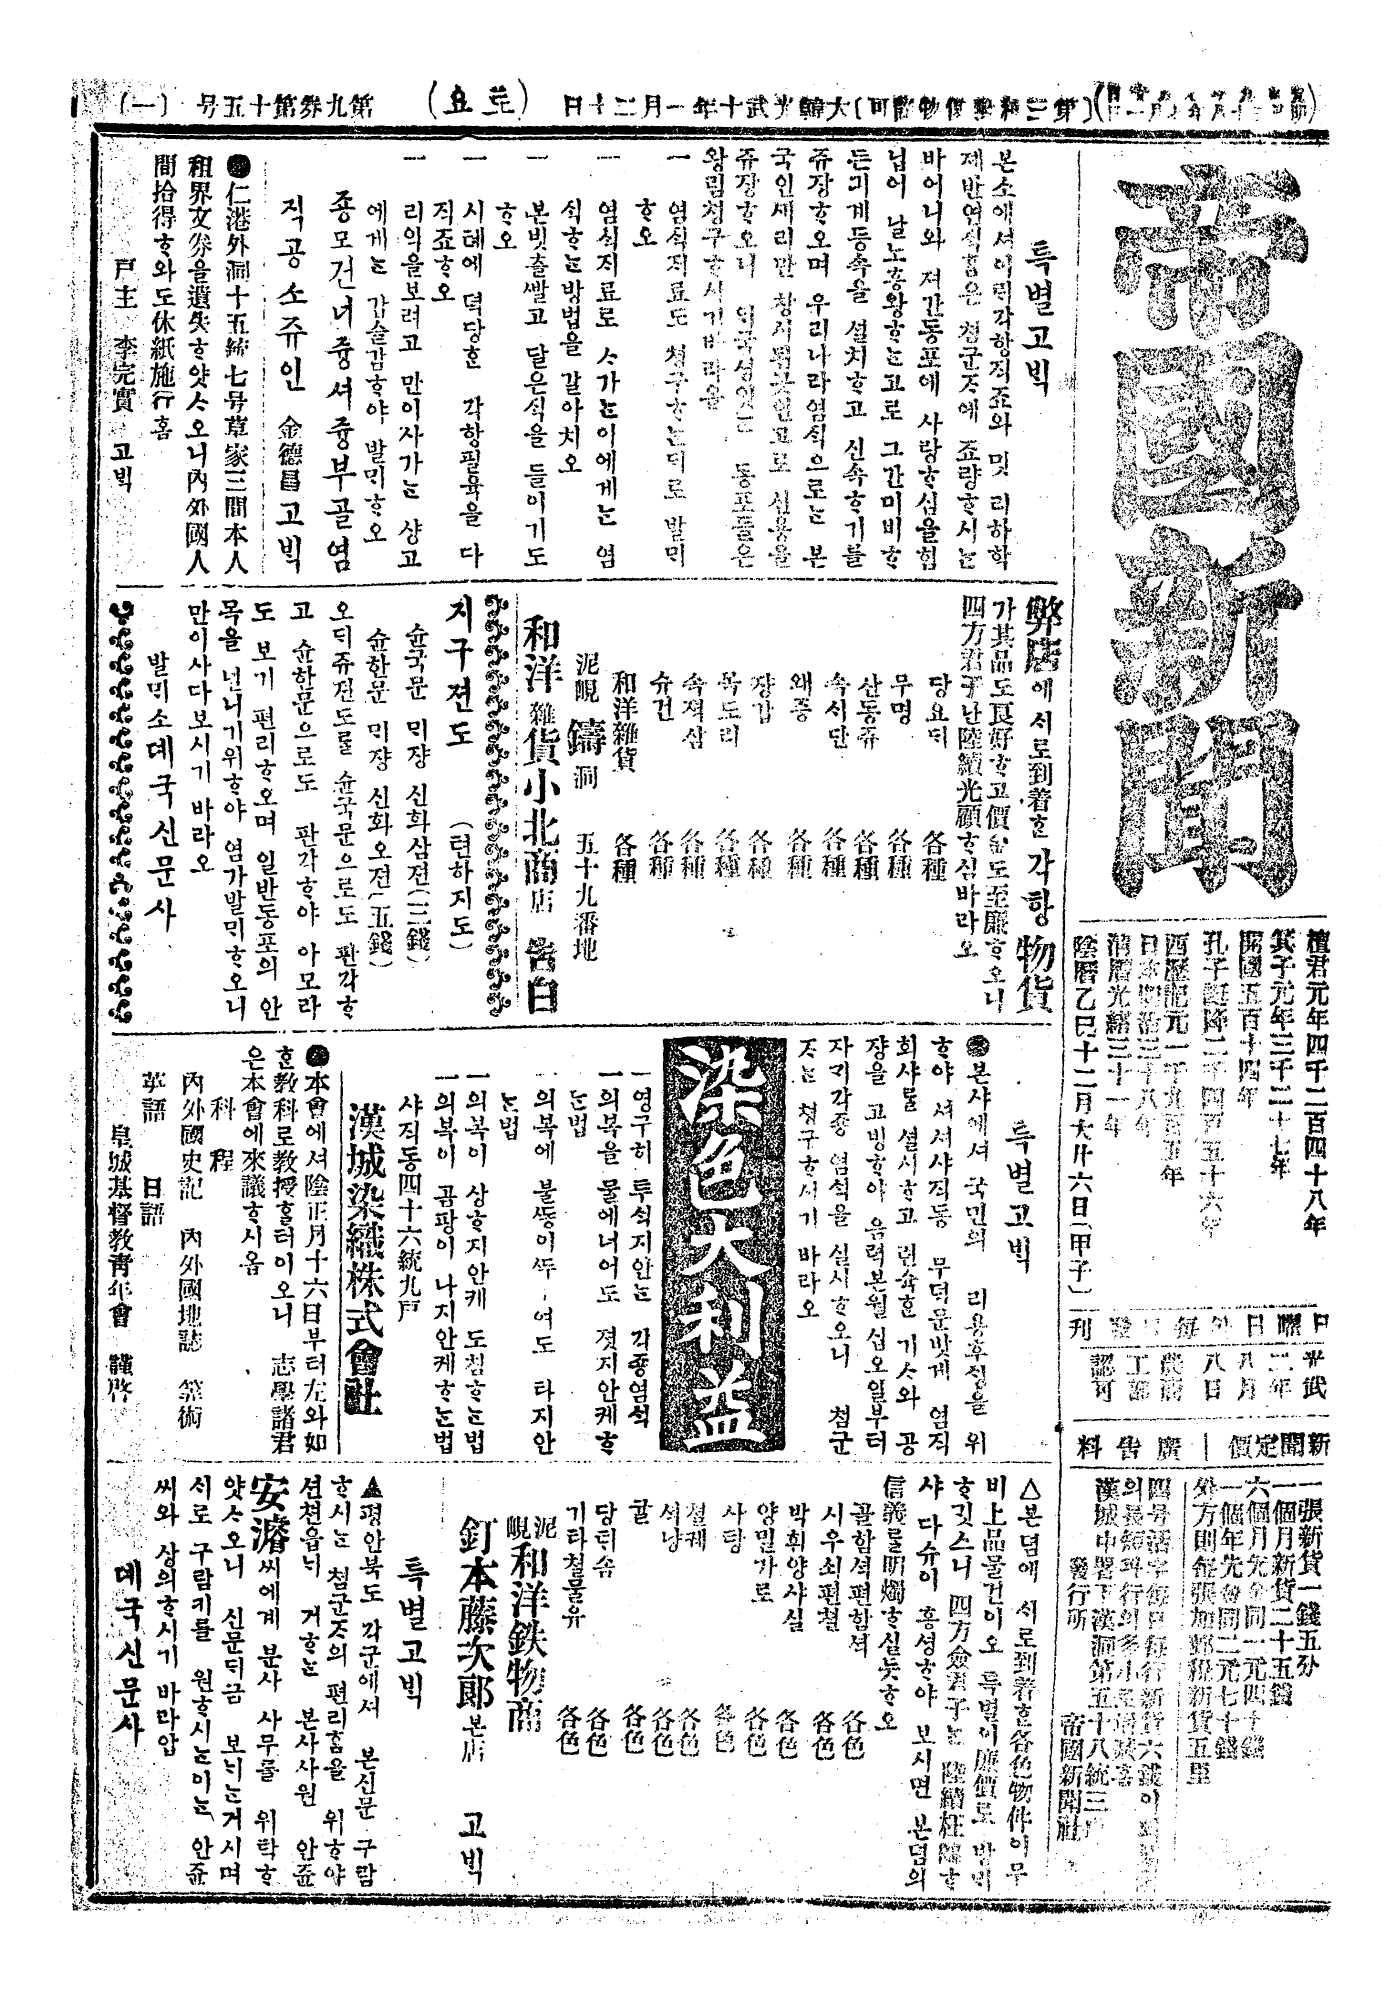 (一) 第九券第十五号 (土요) 大韓光武十年一月二十日
帝國新聞
檀君元年四千二百四十八年
箕子元年三千二十七年
開國五百十四年
孔子誕降二千四百五十六年
西歷記元一千九百五年
日本明治三十八年
淸曆光緖三十一年
陰曆乙巳十二月大廿六日(甲子)
刊 發 日 每 外 日 曜 日
光武二年八月八日
農商工部認可
新聞定價 廣告料
一張新貨一錢五分
一個月新貨二十五錢
六個月先金同一元四十錢
一個年先金同二元七十錢
外方則每張加郵稅新貨五里
四号活字每日每行新貨六錢이되
漢城中署下漢洞第五十八統三戶
發行所 帝國新聞社
특별고빅
본소에셔이력각항직죠와밋리하학
바어니와 져간동포에 사랑ᄒ심을힘
닙어 날노흥왕ᄒᄂ고로 그간미비ᄒ
든긔계등속을 설치ᄒ고 신속ᄒ기를
쥬장ᄒ오며 우리나라염식으로ᄂ 본
왕림청구ᄒ시기바라옴
一 염식지료도 청구ᄒᄂ디로 발ᄆᆡ
ᄒ오
一 염식지료로 ᄉ가ᄂ이에게ᄂ 염
식ᄒᄂ방법을 갈아치오
一 본빗츨ᄲᅢᆯ고 달은식을 들이기도
ᄒ오
一 시톄에 덕당ᄒᆫ 각항필륙을 다
직죠ᄒ오
一 리익을보려고 만이사가ᄂ 샹고
에게ᄂ 감슬감ᄒ야 발ᄆᆡᄒ오
죵모건너즁셔즁부골염
직공소쥬인 金德昌 고빅
●仁港外洞十五統七号草家三間本人
租界文券을遺失ᄒ얏ᄉ오니內外國人
間拾得ᄒ와도休紙施行홈
戶主 李完實 고빅
弊店에서로到着ᄒᆫ각항物貨
가其品도良好ᄒ고價金도至廉ᄒ오니
四方君子난陸續光顧ᄒ심바라오
당요ᄃᆡ 各種
무명 各種
산동쥬 各種
속시단 各種
왜증 各種
쟝갑 各種
목도리 各種
속젹삼 各種
슈건 各種
和洋雜貨 各種
泥峴 鑄洞 五十九番地
和洋雜貨小北商店 告白
지구젼도 (텬하지도)
슌국문 ᄆᆡ쟝 신화삼젼(三錢)
슌한문 ᄆᆡ쟝 신화오젼(五錢)
오ᄃᆡ쥬젼도를 슌국문으로도 판각ᄒ
고 슌한문으로도 판각ᄒ야 아모라
도 보기 편리ᄒ오며 일반동포의 안
목을 넌니기위ᄒ야 염가발ᄆᆡᄒ오니
만이사다보시기 바라오
발ᄆᆡ소뎨국신문사
특별고빅
●본샤에셔 국민의 리용후싱을 위
ᄒ야 셔셔사직동 무덕문밧게 염직
회샤를 설시ᄒ고 련슉ᄒᆫ 기ᄉ와 공
쟝을 고빙ᄒ야 음력본월십오일부터
자ᄆᆡ각죵 염식을 실시ᄒ오니 쳠군
ᄌᄂ 쳥구ᄒ시기 바라오
染色大利益
一 영구히 투식지안ᄂ 각죵염식
一 의복을 물에너어도 졋지안케ᄒ
ᄂ법
一 의복에 불ᄯᅩᆼ이ᄯᅥ러여도 타지안
ᄂ법
一 의복이 상ᄒ지안케 도침ᄒᄂ법
一 의복이 곰팡이 나지안케ᄒᄂ법
샤직동四十六統九戶
漢城染織株式會社
●本會에셔陰正月十六日부터左와如
ᄒᆫ敎科로敎授ᄒᆯ터이오니 志學諸君
은本會에來議ᄒ시옴
科程
內外國史記 內外國地誌 算術
英語 日語
皇城基督敎靑年會 謹啓
△본뎜에 서로到着ᄒᆫ各色物件이무
비上品물건이오 특별이廉價로 방ᄆᆡ
ᄒ깃ᄉ니 四方僉君子ᄂ 陸續枉臨ᄒ
샤 다슈이 흥셩ᄒ야 보시면 본뎜의
信義를明燭ᄒ실듯ᄒ오
골함셕편함셕 各色
시우쇠편쳘 各色
박휘양사실 各色
양밀가로 各色
사탕 各色
쳘궤 各色
셕냥 各色
귤 各色
당ᄃᆡ솜 各色
기타쳘물류 各色
泥峴 和洋鉄物商
釘本藤次郞本店 고빅
특별고빅
▲평안북도 각군에서 본신문 구람
ᄒ시ᄂ 쳠군ᄌ의 편리ᄒᆷ을 위ᄒ야
션쳔읍ᄂᆡ 거ᄒᄂ 본사사원 안쥰
安濬씨에게 분사 사무를 위탁ᄒ
얏ᄉ오니 신문ᄃᆡ금 보ᄂᆡᄂ거시며
서로 구람키를 원ᄒ시ᄂ이ᄂ 안쥰
씨와 상의ᄒ시기 바라압
뎨국신문사